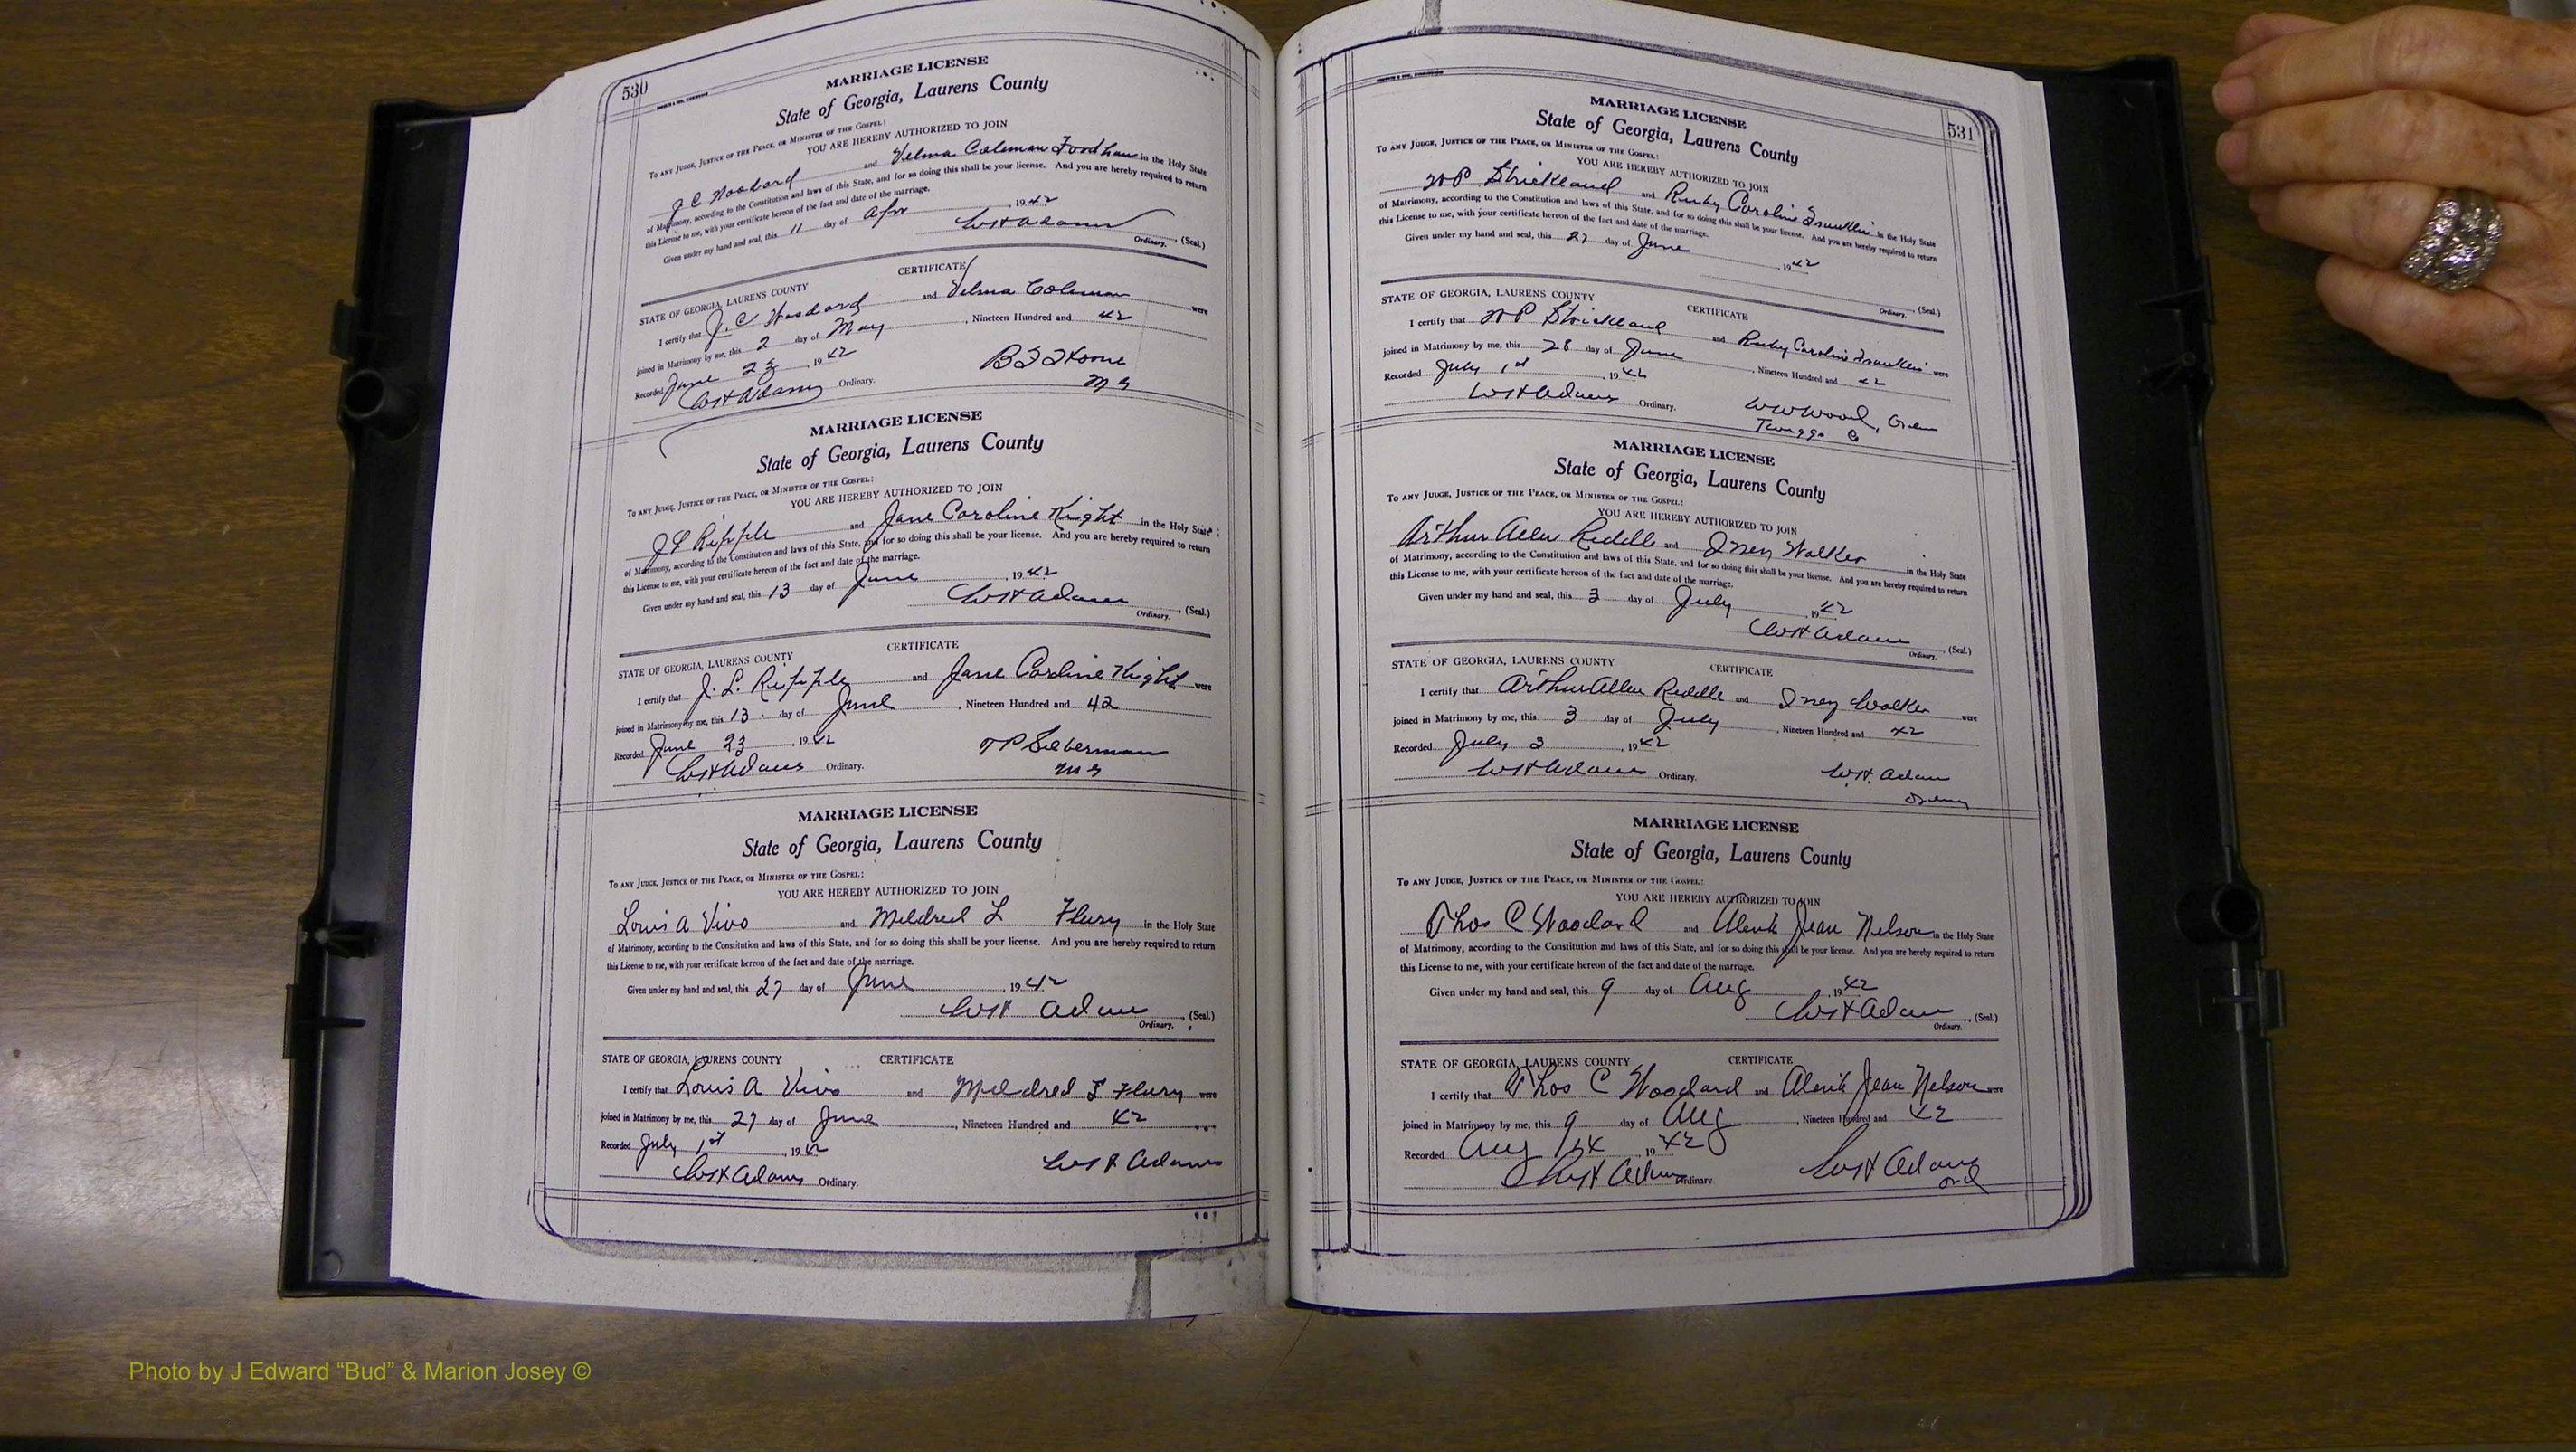 530
MARRIAGE LICENSE
State of Georgia, Laurens County
To any Judge, Justice of the Peace, or Minister of the Gospel:
YOU ARE HEREBY AUTHORIZED TO JOIN
J C Woodard and Velma Coleman Fordham in the Holy State
of Matrimony, according to the Constitution and laws of this State, and for so doing this shall be your license. And you are hereby required to return
this License to me, with your certificate hereon of the fact and date of the marriage.
Given under my hand and seal, this 11 day of Apr, 1942
W H Adams, (Seal.)
Ordinary.
CERTIFICATE
STATE OF GEORGIA, LAURENS COUNTY
I certify that J. C Woodard and Velma Coleman were
joined in Matrimony by me, this 2 day of May, Nineteen Hundred and 42
Recorded June 23, 1942
W H Adams Ordinary.
M G
MARRIAGE LICENSE
State of Georgia, Laurens County
To any Judge, Justice of the Peace, or Minister of the Gospel:
YOU ARE HEREBY AUTHORIZED TO JOIN
J L Ripple and Jane Caroline Kight in the Holy State
of Matrimony, according to the Constitution and laws of this State, and for so doing this shall be your license. And you are hereby required to return
this License to me, with your certificate hereon of the fact and date of the marriage.
Given under my hand and seal, this 13 day of June, 1942
W H Adams, (Seal.)
Ordinary.
CERTIFICATE
STATE OF GEORGIA, LAURENS COUNTY
I certify that J. L. Ripple and Jane Carline Kight were
joined in Matrimony by me, this 13 day of June, Nineteen Hundred and 42
Recorded June 23, 1942
W H Adams Ordinary.
M G
MARRIAGE LICENSE
State of Georgia, Laurens County
To any Judge, Justice of the Peace, or Minister of the Gospel:
YOU ARE HEREBY AUTHORIZED TO JOIN
Louis A Vivo and Mildred L Flury in the Holy State
of Matrimony, according to the Constitution and laws of this State, and for so doing this shall be your license. And you are hereby required to return
this License to me, with your certificate hereon of the fact and date of the marriage.
Given under my hand and seal, this 27 day of June, 1942
W H Adams, (Seal.)
Ordinary.
STATE OF GEORGIA, LAURENS COUNTY CERTIFICATE
I certify that Louis A Vivo and Mildred Flury were
joined in Matrimony by me, this 27 day of June, Nineteen Hundred and 42
Recorded July 1st, 1942
W H Adams
W H Adams Ordinary.
531
MARRIAGE LICENSE
State of Georgia, Laurens County
To any Judge, Justice of the Peace, or Minister of the Gospel:
YOU ARE HEREBY AUTHORIZED TO JOIN
W P Strickland and Ruby Caroline Franklin in the Holy State
of Matrimony, according to the Constitution and laws of this State, and for so doing this shall be your license. And you are hereby required to return
this License to me, with your certificate hereon of the fact and date of the marriage.
Given under my hand and seal, this 27 day of June, 1942
(Seal.)
Ordinary.
STATE OF GEORGIA, LAURENS COUNTY CERTIFICATE
I certify that W P Strickland and Ruby Caroline Franklin were
joined in Matrimony by me, this 28 day of June, Nineteen Hundred and 42
Recorded July 1st, 1942
W H Adams Ordinary.
W W Wood,
Twiggs Co
MARRIAGE LICENSE
State of Georgia, Laurens County
To any Judge, Justice of the Peace, or Minister of the Gospel:
YOU ARE HEREBY AUTHORIZED TO JOIN
Arthur Allen Riddle and Walker in the Holy State
of Matrimony, according to the Constitution and laws of this State, and for so doing this shall be your license. And you are hereby required to return
this License to me, with your certificate hereon of the fact and date of the marriage.
Given under my hand and seal, this 3 day of July, 1942
W H Adams, (Seal.)
Ordinary.
STATE OF GEORGIA, LAURENS COUNTY CERTIFICATE
I certify that Arthur Allen Riddle and Walker were
joined in Matrimony by me, this 3 day of July, Nineteen Hundred and 42
Recorded July 3, 1942
W H Adams Ordinary.
W. H. Adams
MARRIAGE LICENSE
State of Georgia, Laurens County
To any Judge, Justice of the Peace, or Minister of the Gospel:
YOU ARE HEREBY AUTHORIZED TO JOIN
Thos C Woodard and Jean Nelson in the Holy State
of Matrimony, according to the Constitution and laws of this State, and for so doing this shall be your license. And you are hereby required to return
this License to me, with your certificate hereon of the fact and date of the marriage.
Given under my hand and seal, this 9 day of Aug, 1942
W H Adams, (Seal.)
Ordinary.
STATE OF GEORGIA, LAURENS COUNTY CERTIFICATE
I certify that Thos C Woodard and Jean Nelson were
joined in Matrimony by me, this 9 day of Aug, Nineteen Hundred and 42
Recorded Aug, 1942
W H Adams Ordinary.
W H Adams
Ord
Photo by J Edward “Bud” & Marion Josey ©